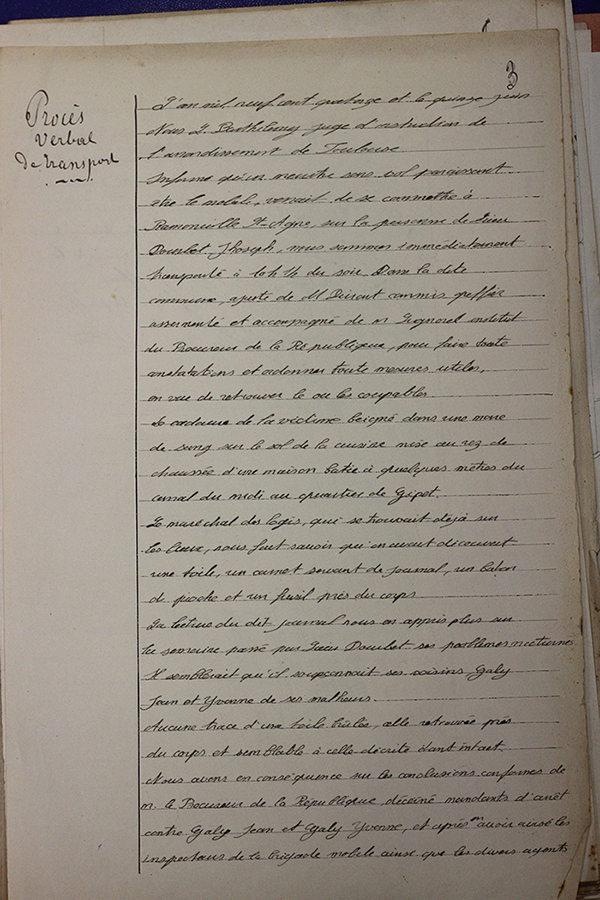 3
Procès
Verbal
De transport
L'an mil neuf cent quatorze et le quinze juin
Nous J. Barthélemy juge d'instruction de
l'arrondissement de Toulouse
Informé qu'un meurtre sans vol paraissant
être le mobile, venait de se commettre à
Ramonville St-Agne, sur la personne de Sieur
Joseph, nous sommes immédiatement
transporté à 16h14 du soir Dans la dite
commune, de Mr Durant commis greffier
assermenté et accompagné de m
du Procureur de la République, pour faire toute
constatations et ordonner toute mesures utiles,
en vue de retrouver le ou les coupables.
Le cadavre de la victime beigné dans une mare
de sang sur le sol de la cuisine mise au rez de
chaussée d'une maison batie à quelques mètres du
canal du midi au quartier de Gipot.
Le maréchal des logis, qui se trouvait déjà sur
les lieux, nous fait savoir qu'on avait découvert
une toile, un carnet servant de journal, un baton
de pioche et un fusil près du corps
La lecture du dit journal nous en appris plus sur
la semaine passé par ses problèmes nocturnes
Il semblerait qu'il soupçonnait ses voisins, Galy
Jean et Yvonne de ses malheurs.
Aucune trace d'une toile brûlée, celle retrouvée près
du corps et semblable à celle décrite étant intact.
Nous avons en conséquence sur les conclusions conformes de
m. le Procureur de la République, décerné mandants d'arrêt
contre Galy Jean et Galy Yvonne, et après en avoir avisé les
inspecteurs de la brigade mobile ainsi que les divers agents